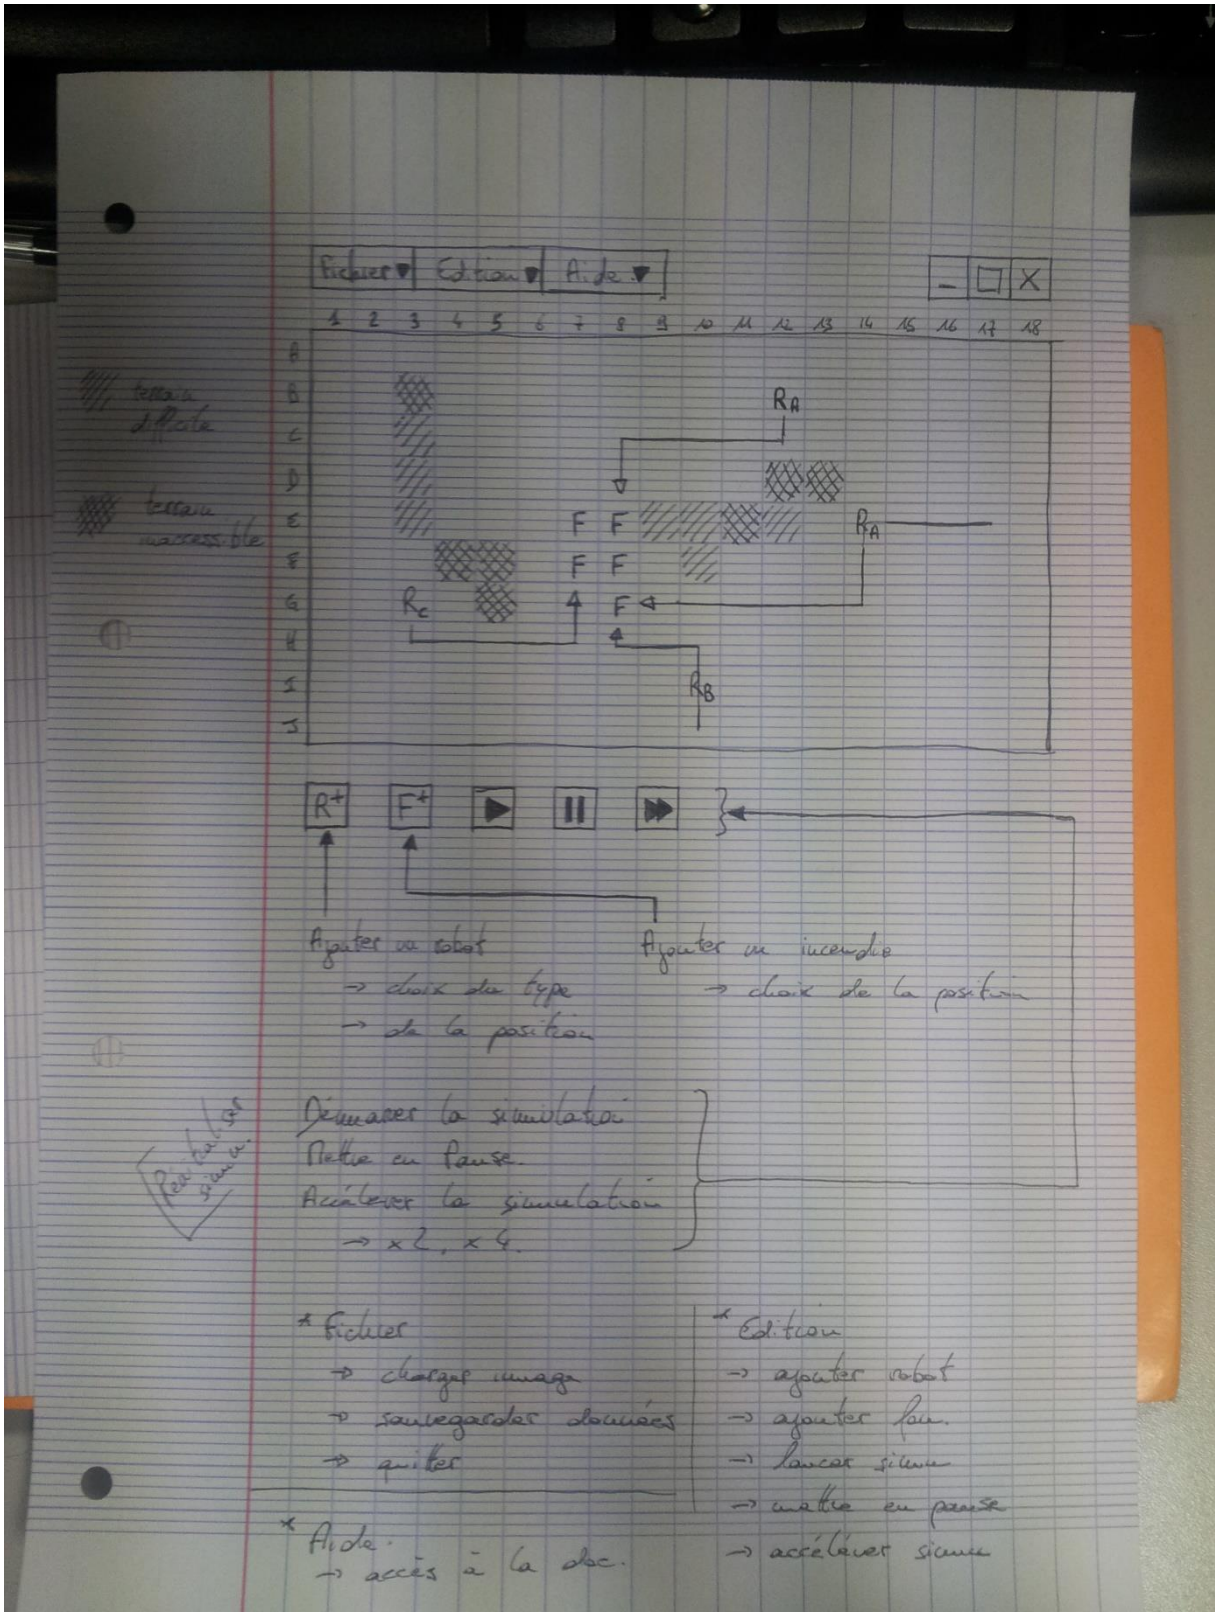 Fichier▼ Edition▼ Aide▼ _ □ X
1 2 3 4 5 6 7 8 9 10 11 12 13 14 15 16 17 18
A
B
C
D
E
F
G
H
I
J
terrain
difficile
terrain
inaccessible
RA
F F RA
F F
Rc F
RB
R+ F+
Ajouter un robot
→ choix du type
→ de la position
Ajouter un incendie
→ choix de la position
Démarrer la simulation
Mettre en Pause.
Accélérer la simulation
→ x2, x4.
Réinitialiser
simu.
* Fichier
→ charger image
→ sauvegarder données
→ quitter
* Edition
→ ajouter robot
→ ajouter feu.
→ lancer simu
→ mettre en pause
→ accélérer simu
* Aide.
→ accès à la doc.